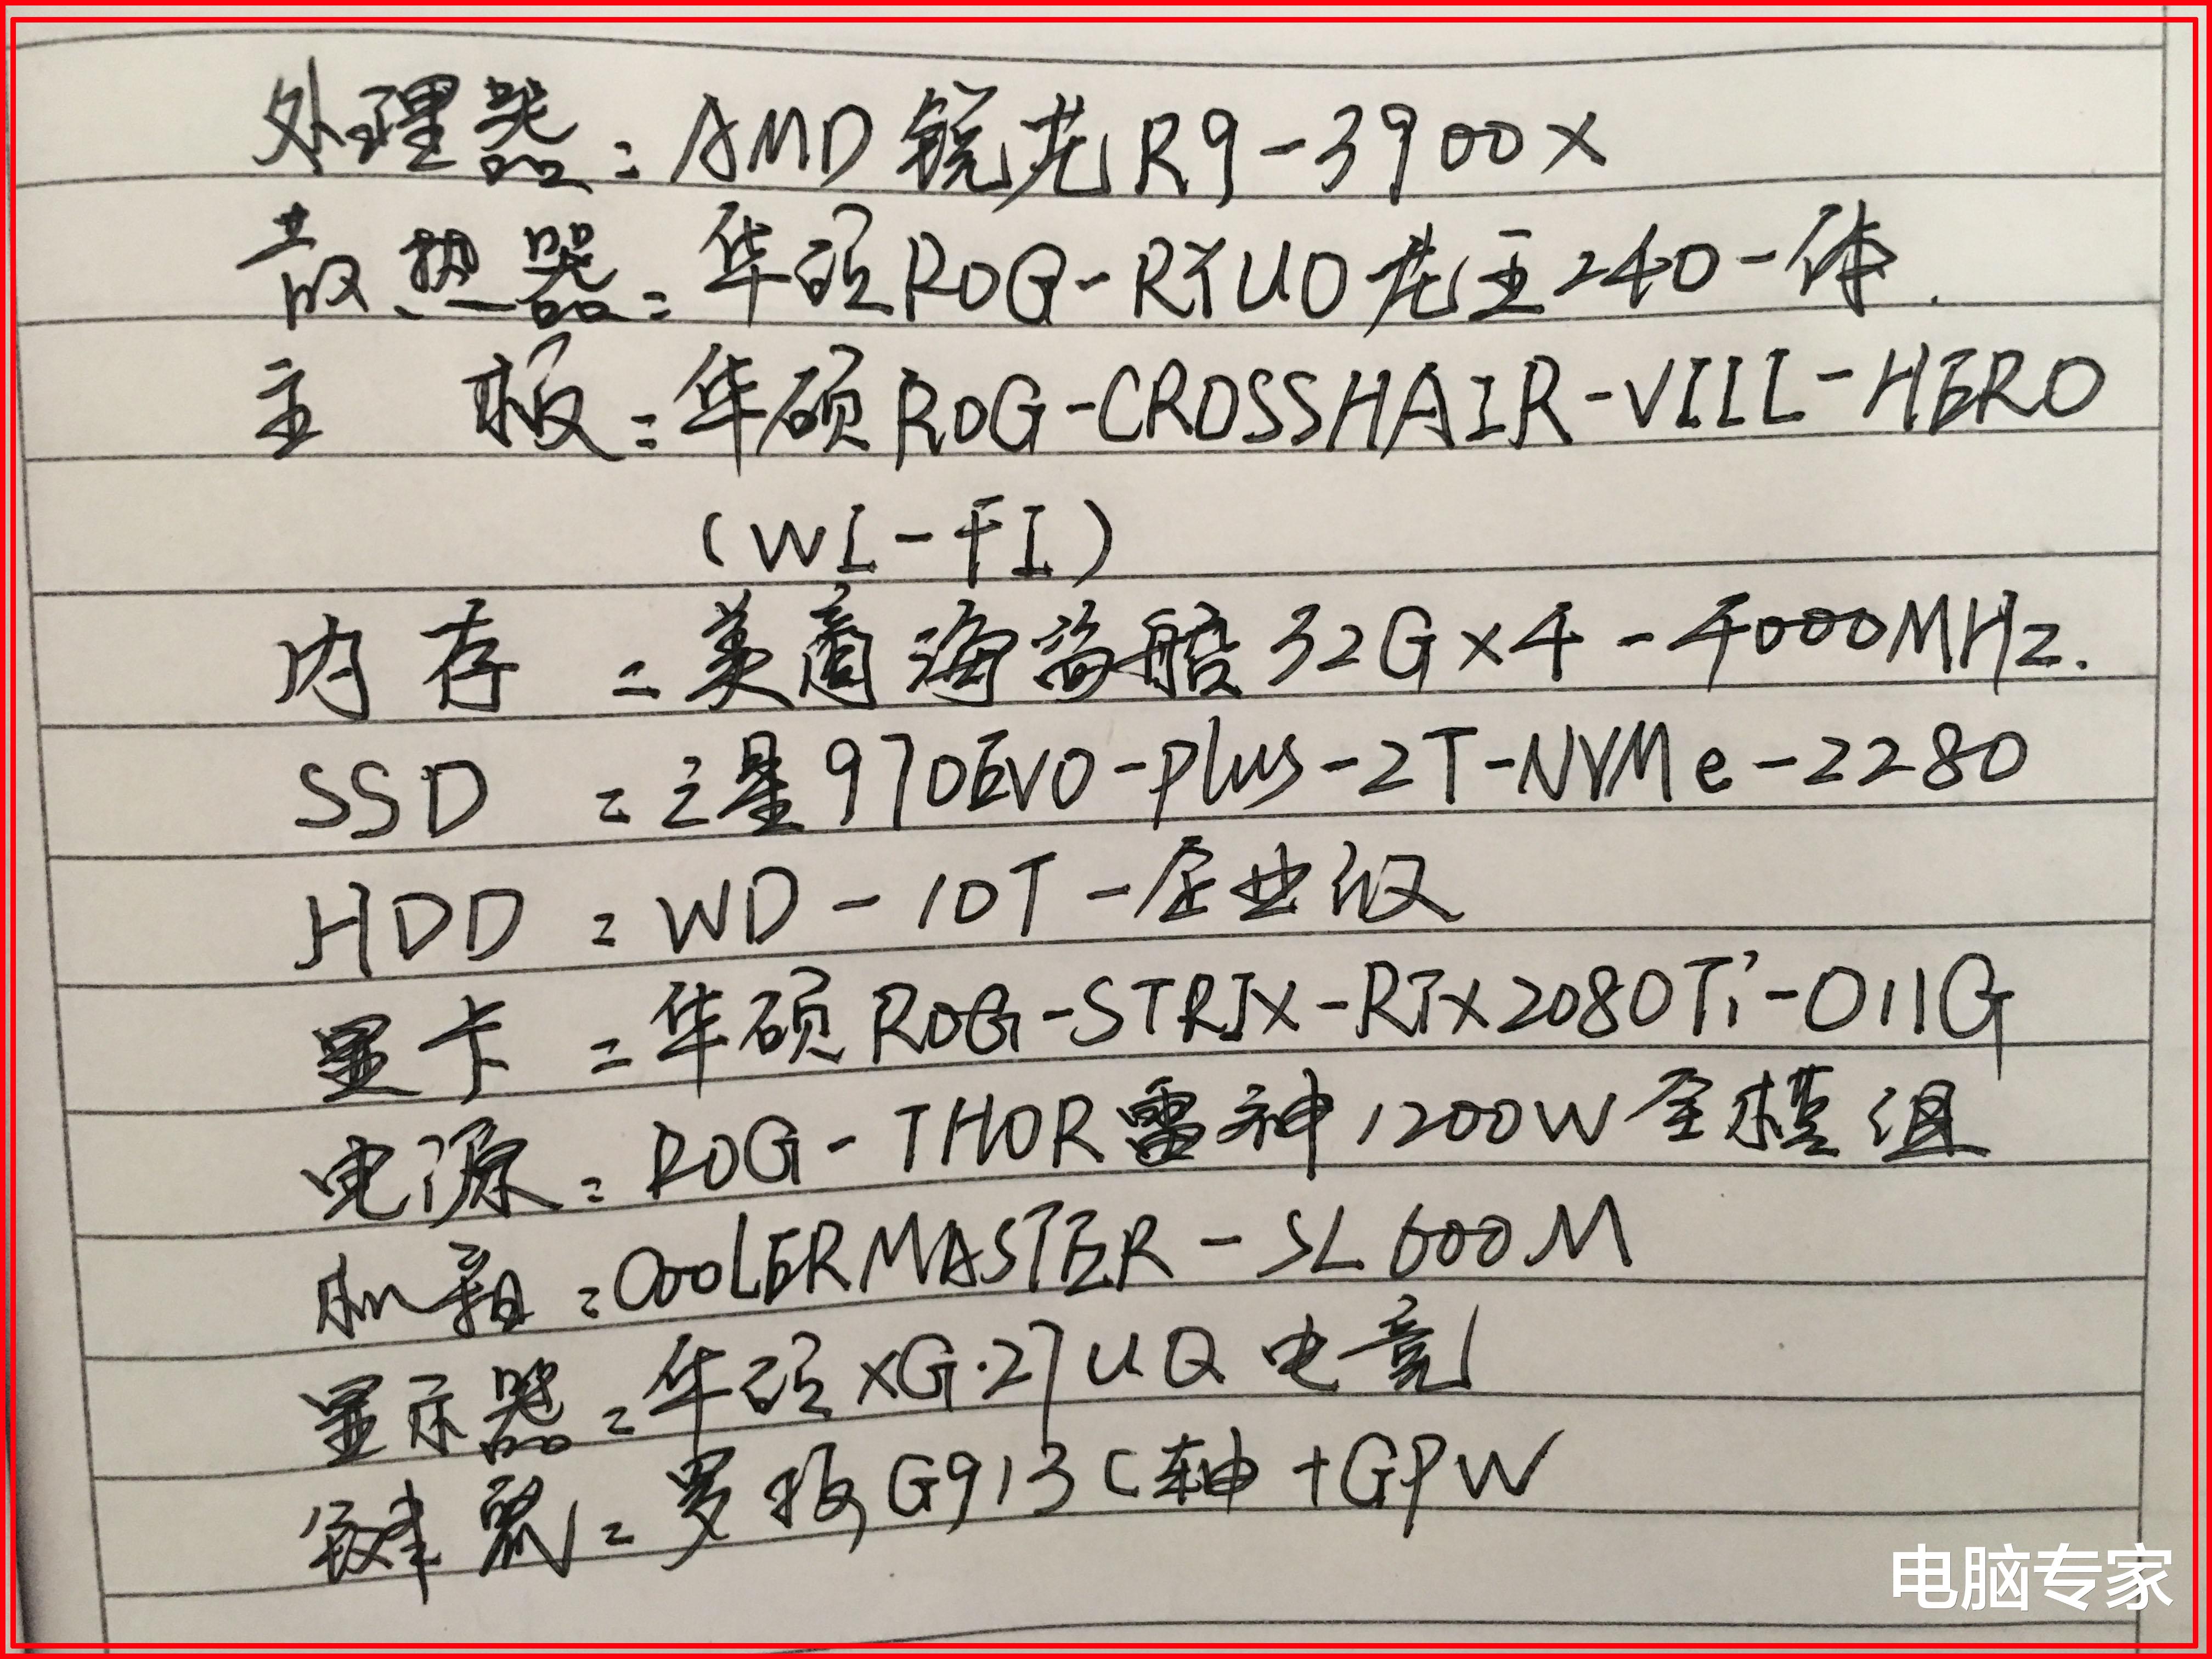 处理器：AMD锐龙R9-3900X
散热器：华硕ROG-RYUO龙王240一体.
主 板：华硕ROG-CROSSHAIR-VIII-HERO
(WI-FI)
内存：美商海盗船32G×4-4000MHz.
SSD：三星970EVO-plus-2T-NVMe-2280
HDD：WD-10T-企业级
显卡：华硕ROG-STRIX-RTX2080Ti-O11G
电源：ROG-THOR雷神1200W全模组
机箱：COOLERMASTER-SL600M
显示器：华硕XG.27UQ电竞
键鼠：罗技G913C轴+GPW
电脑专家